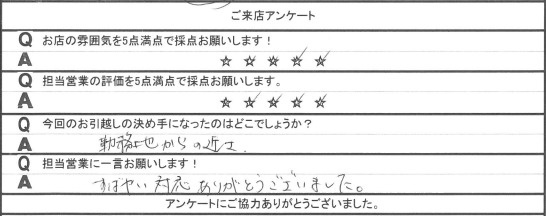 ご来店アンケート
Q お店の雰囲気を5点満点で採点お願いします！
A ☆ ☆ ☆ ☆ ☆
Q 担当営業の評価を5点満点で採点お願いします。
A ☆ ☆ ☆ ☆ ☆
Q 今回のお引越しの決め手になったのはどこでしょうか？
A 勤務地からの近さ
Q 担当営業に一言お願いします！
A すばやい対応ありがとうございました。
アンケートにご協力ありがとうございました。